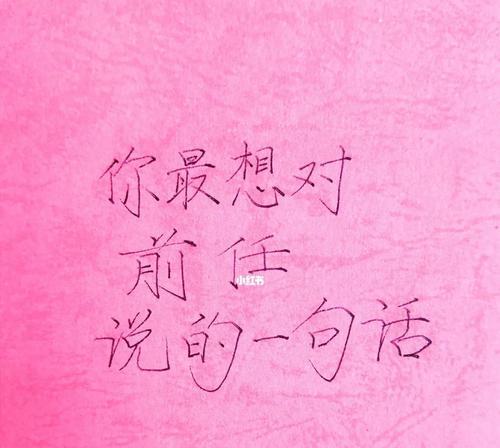 你最想对
前任
小红书
说的一句话